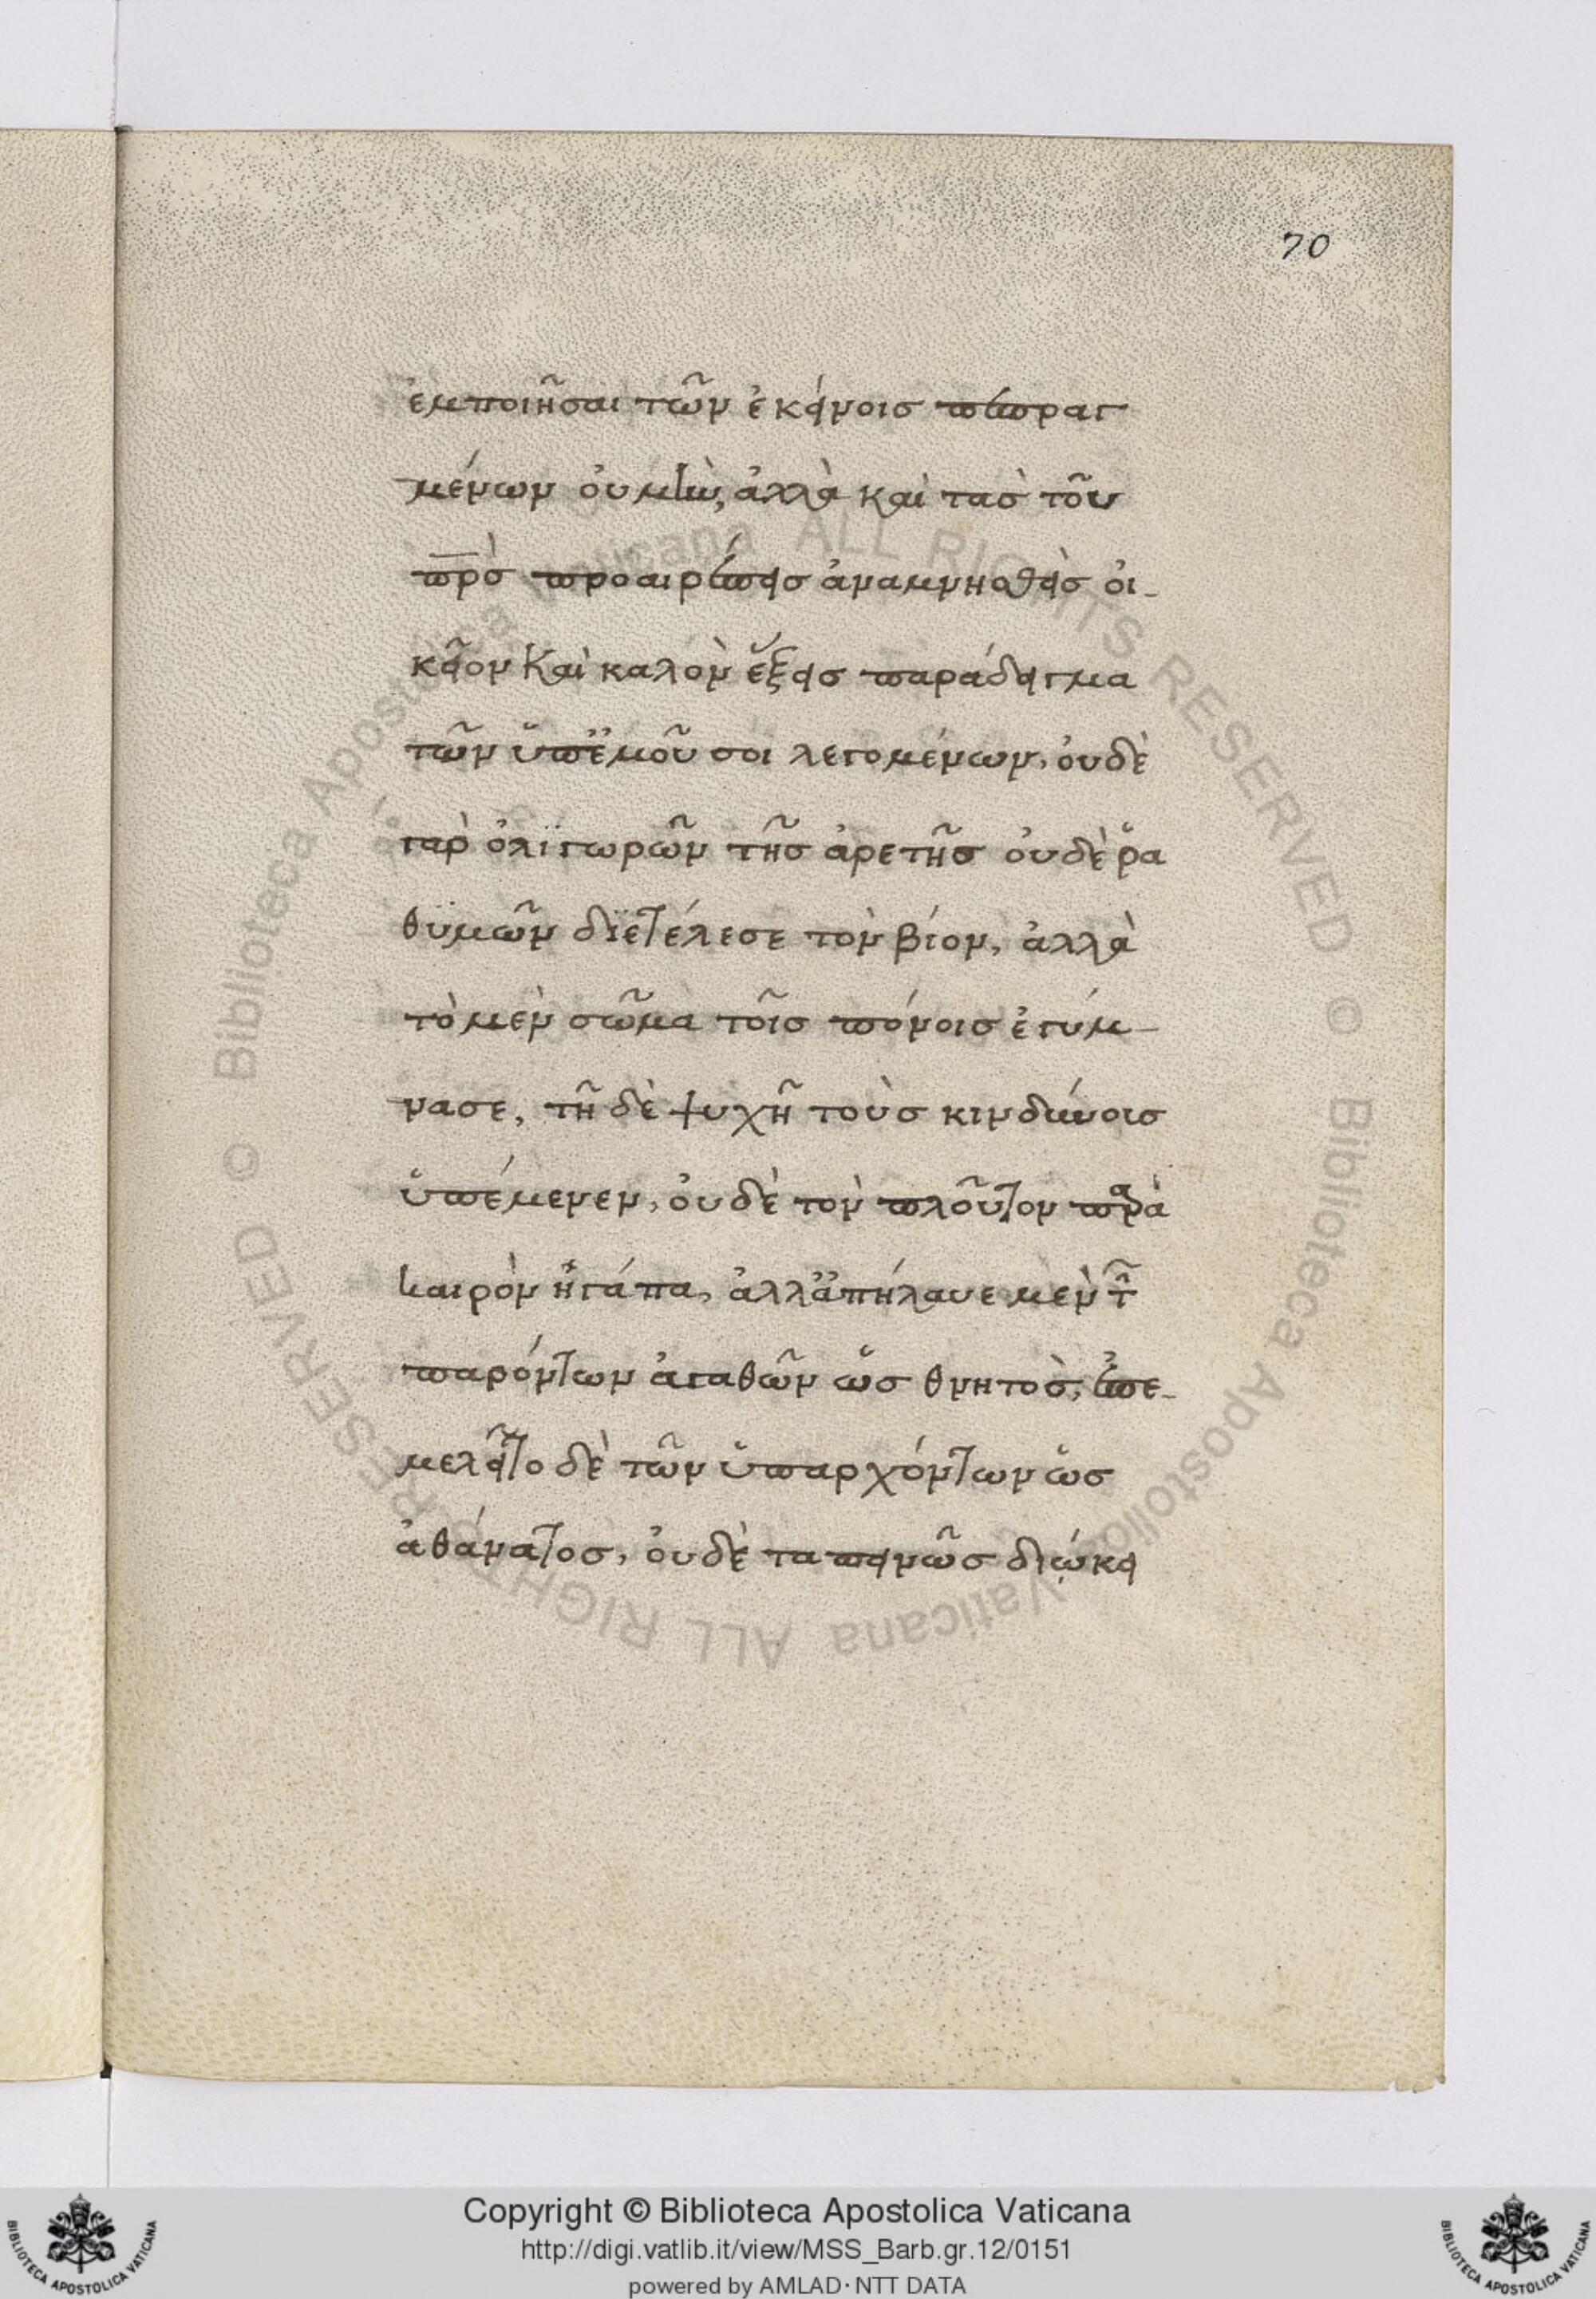 70
ἐμποιῆσαι τῶν ἐκείνοις πεπραγ
μένων οὐ μὴν, ἀλλὰ καὶ τὰς τοῦ
πρ̅ὸς προαιρέσεις ἀναμνησθεὶς οἰ-
κεῖον καὶ καλὸν ἕξεις παράδειγμα
τῶν ὑπ' ἐμοῦ σοι λεγομένων, οὐδὲ
γὰρ ὀλιγωρῶν τῆς ἀρετῆς οὐδὲ ῥα
θυμῶν διετέλεσε τὸν βίον, ἀλλὰ
τὸ μὲν σῶμα τοῖς πόνοις ἐγύμ-
νασε, τῆ δὲ ψυχῆ τοὺς κινδύνοις
ὑπέμενεν, οὐδὲ τὸν πλοῦτον παρὰ
καιρὸν ἠγάπα, ἀλλ' ἀπήλαυε μὲν τῶν
παρόντων ἀγαθῶν ὡς θνητὸς, ἐπε-
μελεῖτο δὲ τῶν ὑπαρχόντων ὡς
ἀθάνατος, οὐδὲ ταπεινῶς διώκει
Copyright © Biblioteca Apostolica Vaticana
http://digi.vatlib.it/view/MSS_Barb.gr.12/0151
powered by AMLAD·NTT DATA
BIBLIOTECA APOSTOLICA VATICANA
BIBLIOTECA APOSTOLICA VATICANA
© Biblioteca Apostolica Vaticana ALL RIGHTS RESERVED © Biblioteca Apostolica Vaticana ALL RIGHTS RESERVED